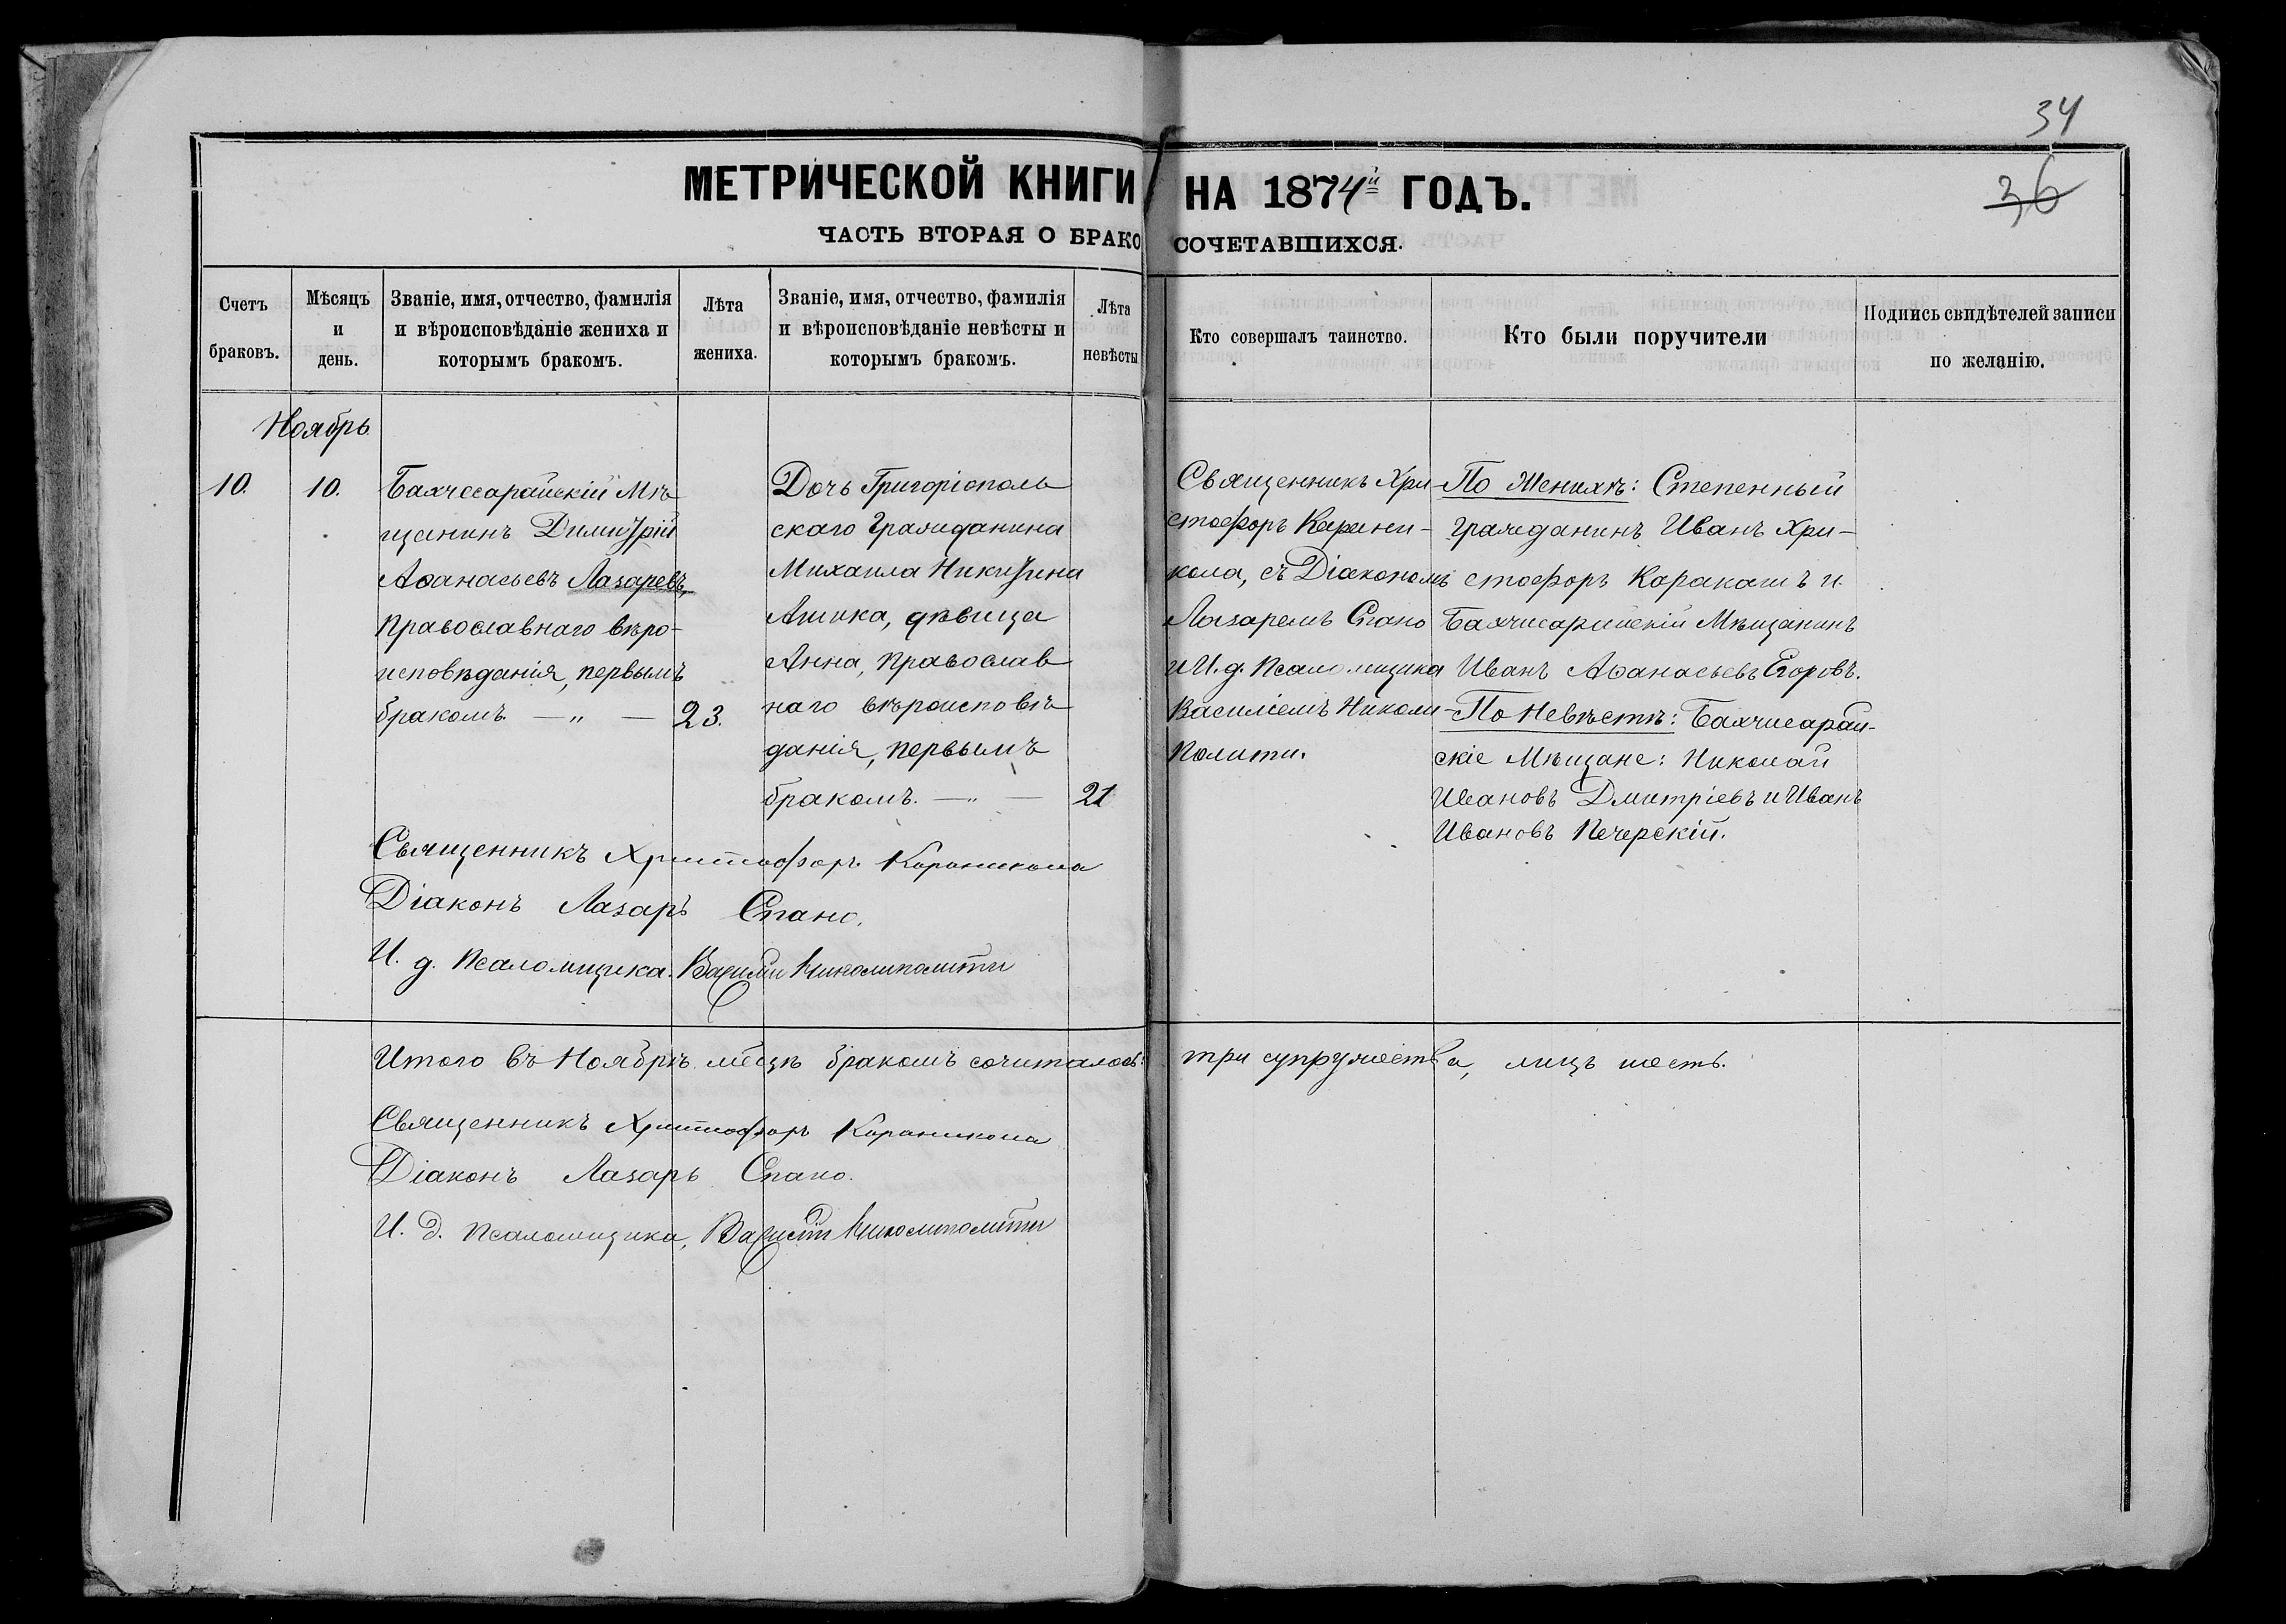 34
36
МЕТРИЧЕСКОЙ КНИГИ НА 1874й ГОДЪ.
ЧАСТЬ ВТОРАЯ О БРАКОСОЧЕТАВШИХСЯ.
Счетъ
браковъ.
Мѣсяцъ
и
день.
Званіе, имя, отчество, фамилія
и вѣроисповѣданіе жениха и
которымъ бракомъ.
Лѣта
жениха.
Званіе, имя, отчество, фамилія
и вѣроисповѣданіе невѣсты и
которымъ бракомъ.
Лѣта
невѣсты
Кто совершалъ таинство.
Кто были поручители
Подпись свидѣтелей записи
по желанію.
Ноябрь
10.
10.
Бахчесарайскій Мѣ-
щанинъ Димитрій
Аѳанасьевъ Лазаревъ,
Православнаго вѣро-
исповѣданія, первымъ
бракомъ — „ —
23.
Дочь Григоріополь
скаго Гражданина
Михаила Никитина
Ашика, дѣвица
Анна, Православ
наго вѣроисповѣ
данія, первымъ
бракомъ. — „ —
21
Священникъ Хри-
стофоръ Карани-
кола, съ Діакономъ
Лазаремъ Спано
и И. д. Псаломщика
Василіемъ Николи-
Полити.
По Женихѣ: Степенный
гражданинъ Иванъ Хри-
стофоръ Каракашъ и
Бахчисарайскій Мѣщанинъ
Иванъ Аѳанасьевъ Егоровъ.
По Невѣстѣ: Бахчисарай-
скіе Мѣщане: Николай
Ивановъ Дмитріевъ и Иванъ
Ивановъ Печерскій.
Священникъ Христофоръ Караникола
Діаконъ Лазарь Спано.
И. д. Псаломщика. Василій Николиполити
Итого въ Ноябрѣ мѣсцѣ бракомъ сочиталось: три супружества, лицъ шесть.
Священникъ Христофоръ Караникола
Діаконъ Лазарь Спано.
И. д. Псаломщика, Василій Николиполити